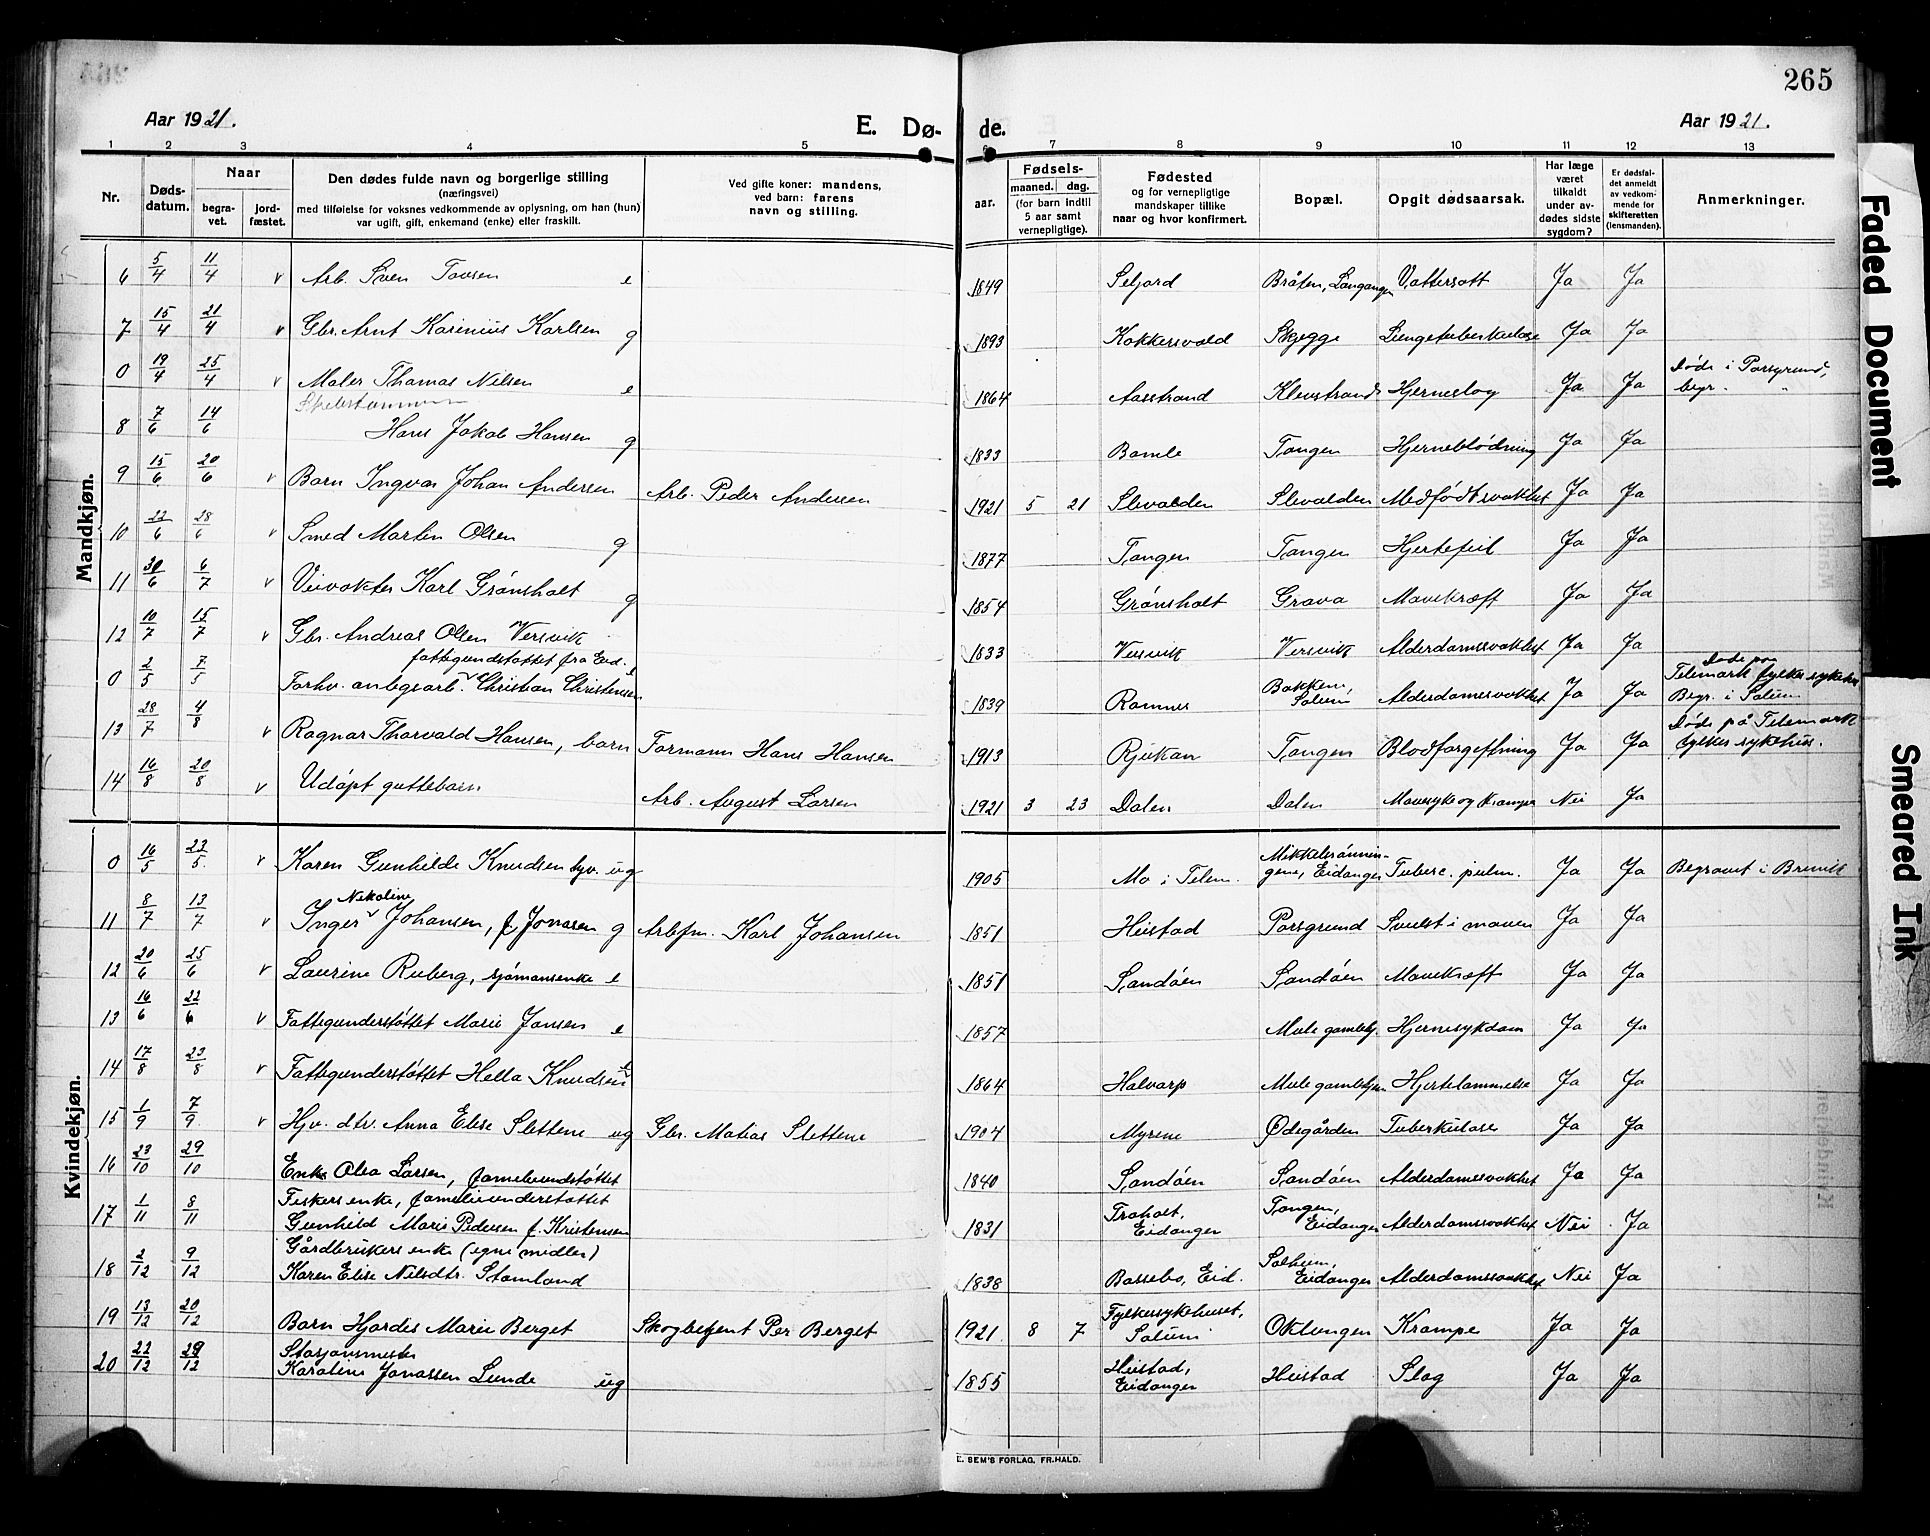 265
Aar 1921.
E. Dø- de.
Aar 1921.
1 2 3 4 5 6 7 8 9 10 11 12 13
Nr.
Døds-
datum.
Naar
begra-
vet.
jord-
fæstet.
Den dødes fulde navn og borgerlige stilling
(næringsvei)
med tilføielse for voksnes vedkommende av oplysning, om han (hun)
var ugift, gift, enkemand (enke) eller fraskilt.
Ved gifte koner: mandens,
ved barn: farens
navn og stilling.
aar.
Fødsels-
maaned. dag.
(for barn indtil
5 aar samt
vernepligtige).
Fødested
og for vernepligtige
mandskaper tillike
naar og hvor konfirmert.
Bopæl.
Opgit dødsaarsak.
Har læge
været
tilkaldt
under av-
dødes sidste
sygdom?
Er dødsfal-
det anmeldt
av vedkom-
mende for
skifteretten
(lensmanden).
Anmerkninger.
Mandkjøn.
6 5/4 11/4 v Arb. Sven Tovsen e 1849 Seljord Bråten, Langangen Vattersott Ja Ja
7 15/4 21/4 v Gbr. Arnt Karinius Karlsen g 1893 Kokkersvold Skjegge Lungetuberkulose Ja Ja
0 19/4 25/4 v Maler Thomas Nilsen e 1864 Aasstrand Klevstrand Hjerneslag Ja Ja Døde i Porsgrund, begr. " "
8 7/6 14/6 Hans Jakob Hansen g 1833 Bamle Tangen Hjerneblödning Ja Ja
9 15/6 20/6 v Barn Ingvar Johan Andersen Arb. Peder Andersen 1921 5 21 Slevolden Slevolden Medfödt svakhet Ja Ja
10 22/6 28/6 v Smed Martin Olsen g 1877 Tangen Tangen Hjertefeil Ja Ja
11 30/6 6/7 v Veivokter Karl Grönsholt g 1854 Grönsholt Grava Mavekræft Ja Ja
12 10/7 15/7 v Gbr. Andreas Olsen Versvik e 1833 Versvik Versvik Alderdomssvakhet Ja Ja
0 2/5 7/5 Forhv. anlegsarb. v Christian Christensen fattigundstöttet fra Eid. 1839 Ramnes Bakken, Solum Alderdomssvakhet Ja Ja Døde paa Telemark fylkes sykehus Begr. i Solum
13 28/7 4/8 v Ragnar Thorvald Hansen, barn Formann Hans Hansen 1913 Rjukan Tangen Blodforgiftning Ja Ja Døde på Telemark fylkes sykehus.
14 16/8 20/8 v Udöpt guttebarn Arb. August Larsen 1921 3 23 Dalen Dalen Mavesyke og Krampe Nei Ja
Kvindekjøn.
0 16/5 23/5 v Karen Gunhilde Knudsen hjv. ug 1905 Mo i Telem. Mikkelsrönningene, Eidanger Tuberc. pulm. Ja Ja Begravet i Brevik
11 8/7 13/7 v Inger v Nikoline Johansen, f. Jonasen g Arbfm. Karl Johansen 1851 Heistad Porsgrund Svulst i maven Ja Ja
12 20/6 25/6 v Laurine Ruberg, sjömansenke e 1851 Sandöen Sandöen Mavekræft Ja Ja
13 16/6 22/6 v Fattigunderstöttet Marie Jansen e 1857 Mule gamlehj. Hjernesykdom Ja Ja
14 17/8 23/8 v Fattigunderstöttet Hella Knudsen e 1864 Halvarp Mule gamlehjem Hjertelammelse Ja Ja
15 1/9 7/9 v Hjv. dtr. Anna Elise Slettene ug Gbr. Matias Slettene 1904 Myrene Ødegården Tuberkulose Ja Ja
16 23/10 29/10 Enke Olea Larsen, familieundstöttet 1840 Sandöen Sandöen Alderdomssvakhet Ja Ja
17 1/11 8/11 Fiskers enke, familieunderstöttet
Gunhild Marie Pedersen f. Kristensen 1831 Traholt, Eidanger Tangen, Eidanger Alderdomssvakhet Nei Ja
18 2/12 9/12 Gårdbrukers enke (egne midler)
Karen Elise Nilsdtr. Stamland 1838 Bassebo, Eid. Solheim, Eidanger Alderdomssvakhet Nei Ja
19 13/12 20/12 Barn Hjördis Marie Berget Skogbetjent Per Berget 1921 8 7 Fylkessykehuset, Solum Oklungen Krampe Ja Ja
20 22/12 29/12 Stasjonsmester
Karoline Jonassen Lunde ug 1855 Heistad, Eidanger Heistad Slag Ja Ja
E. SEM'S FORLAG, FR.HALD.
Faded Document
Smeared Ink